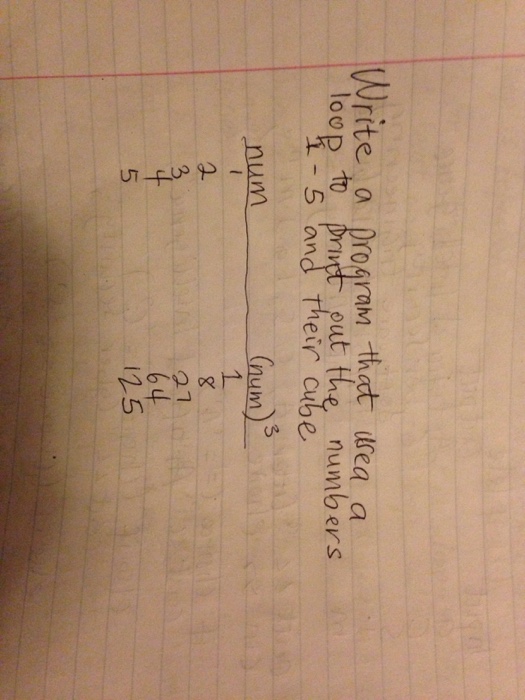 Write a program that usea a
loop to print out the numbers
1 - 5 and their cube
num (num)³
1 1
2 8
3 27
4 64
5 125